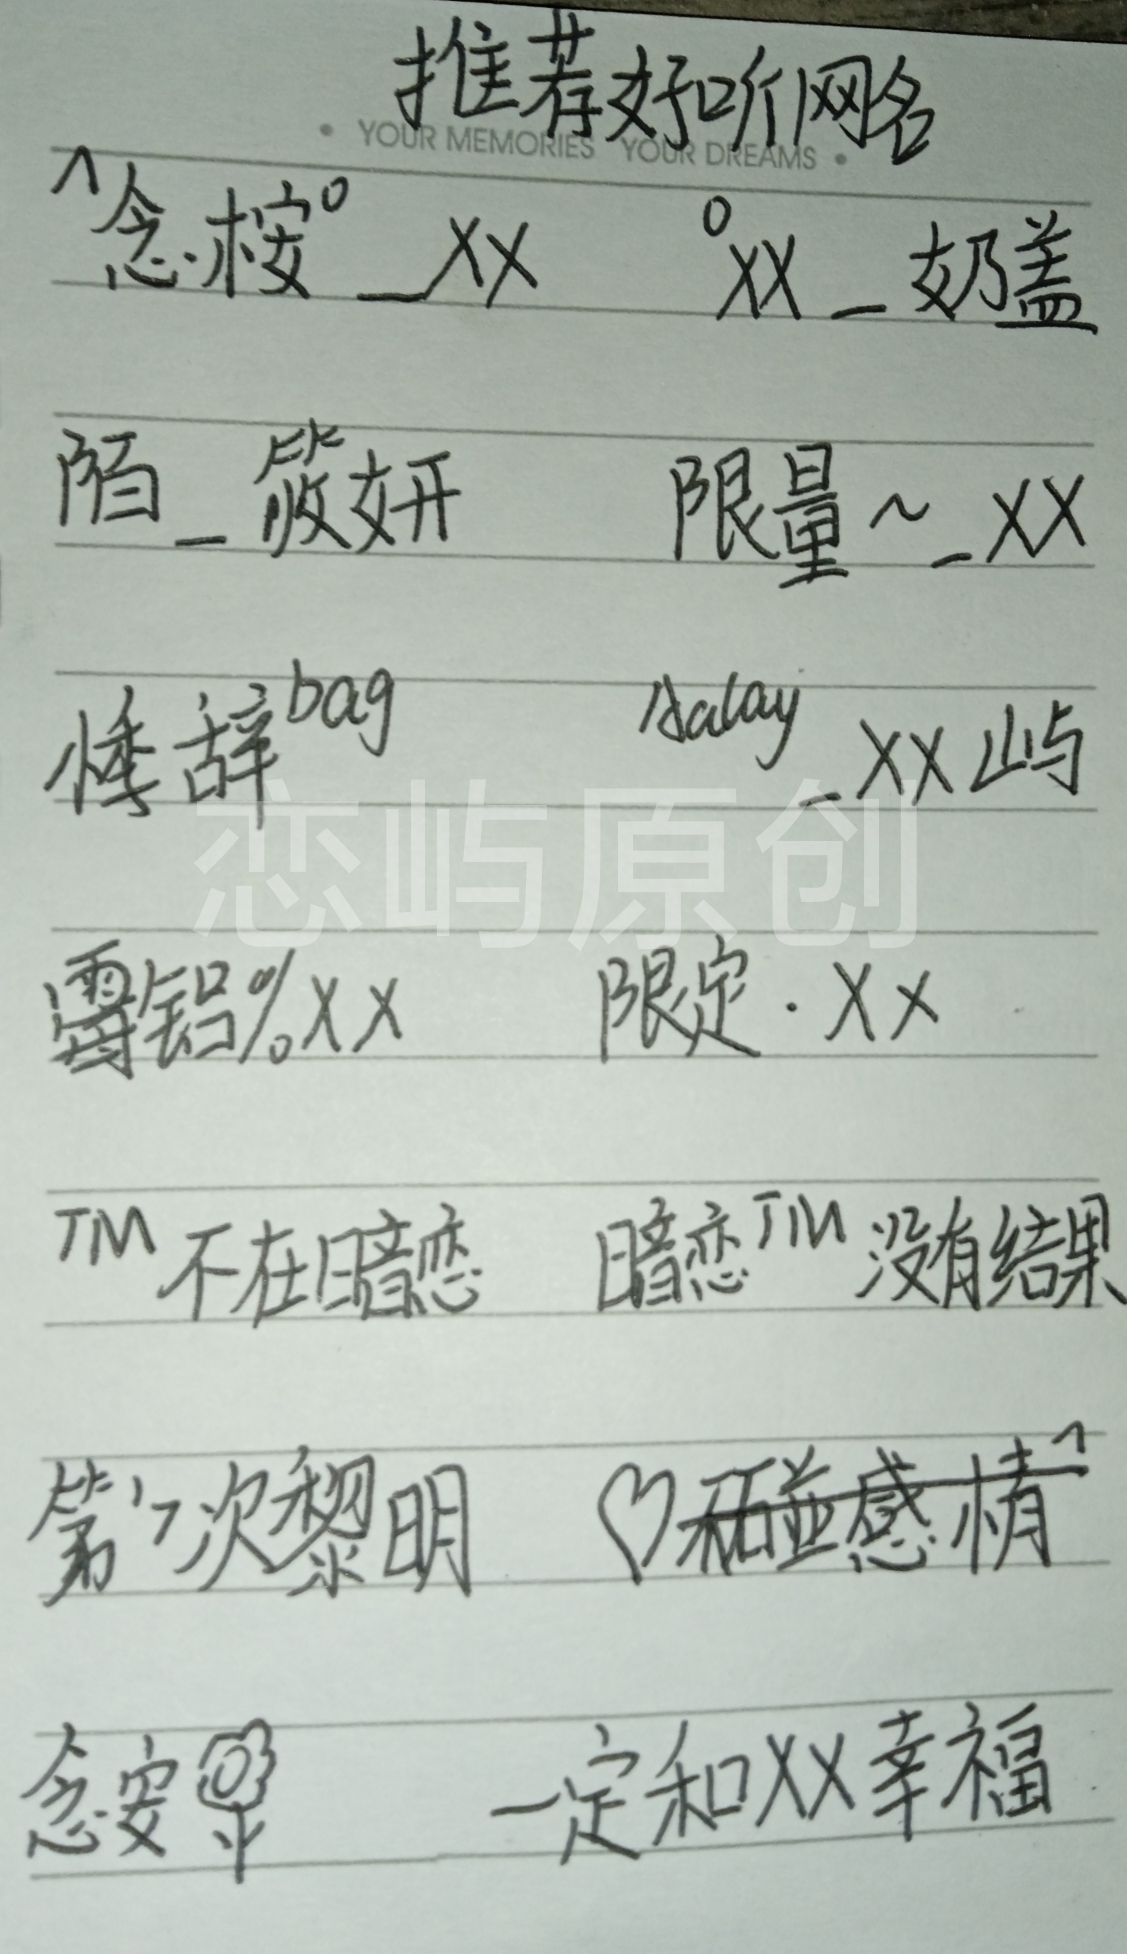 推荐好听网名
• YOUR MEMORIES YOUR DREAMS •
^念桉°_xx °xx_奶盖
陌_筱妍 限量~_xx
悸辞bag _xx屿
恋屿原创
霉铝%xx 限定.xx
TM不在暗恋 暗恋TM没有结果
第17次黎明 ♡碰感情^
念安 一定和XX幸福